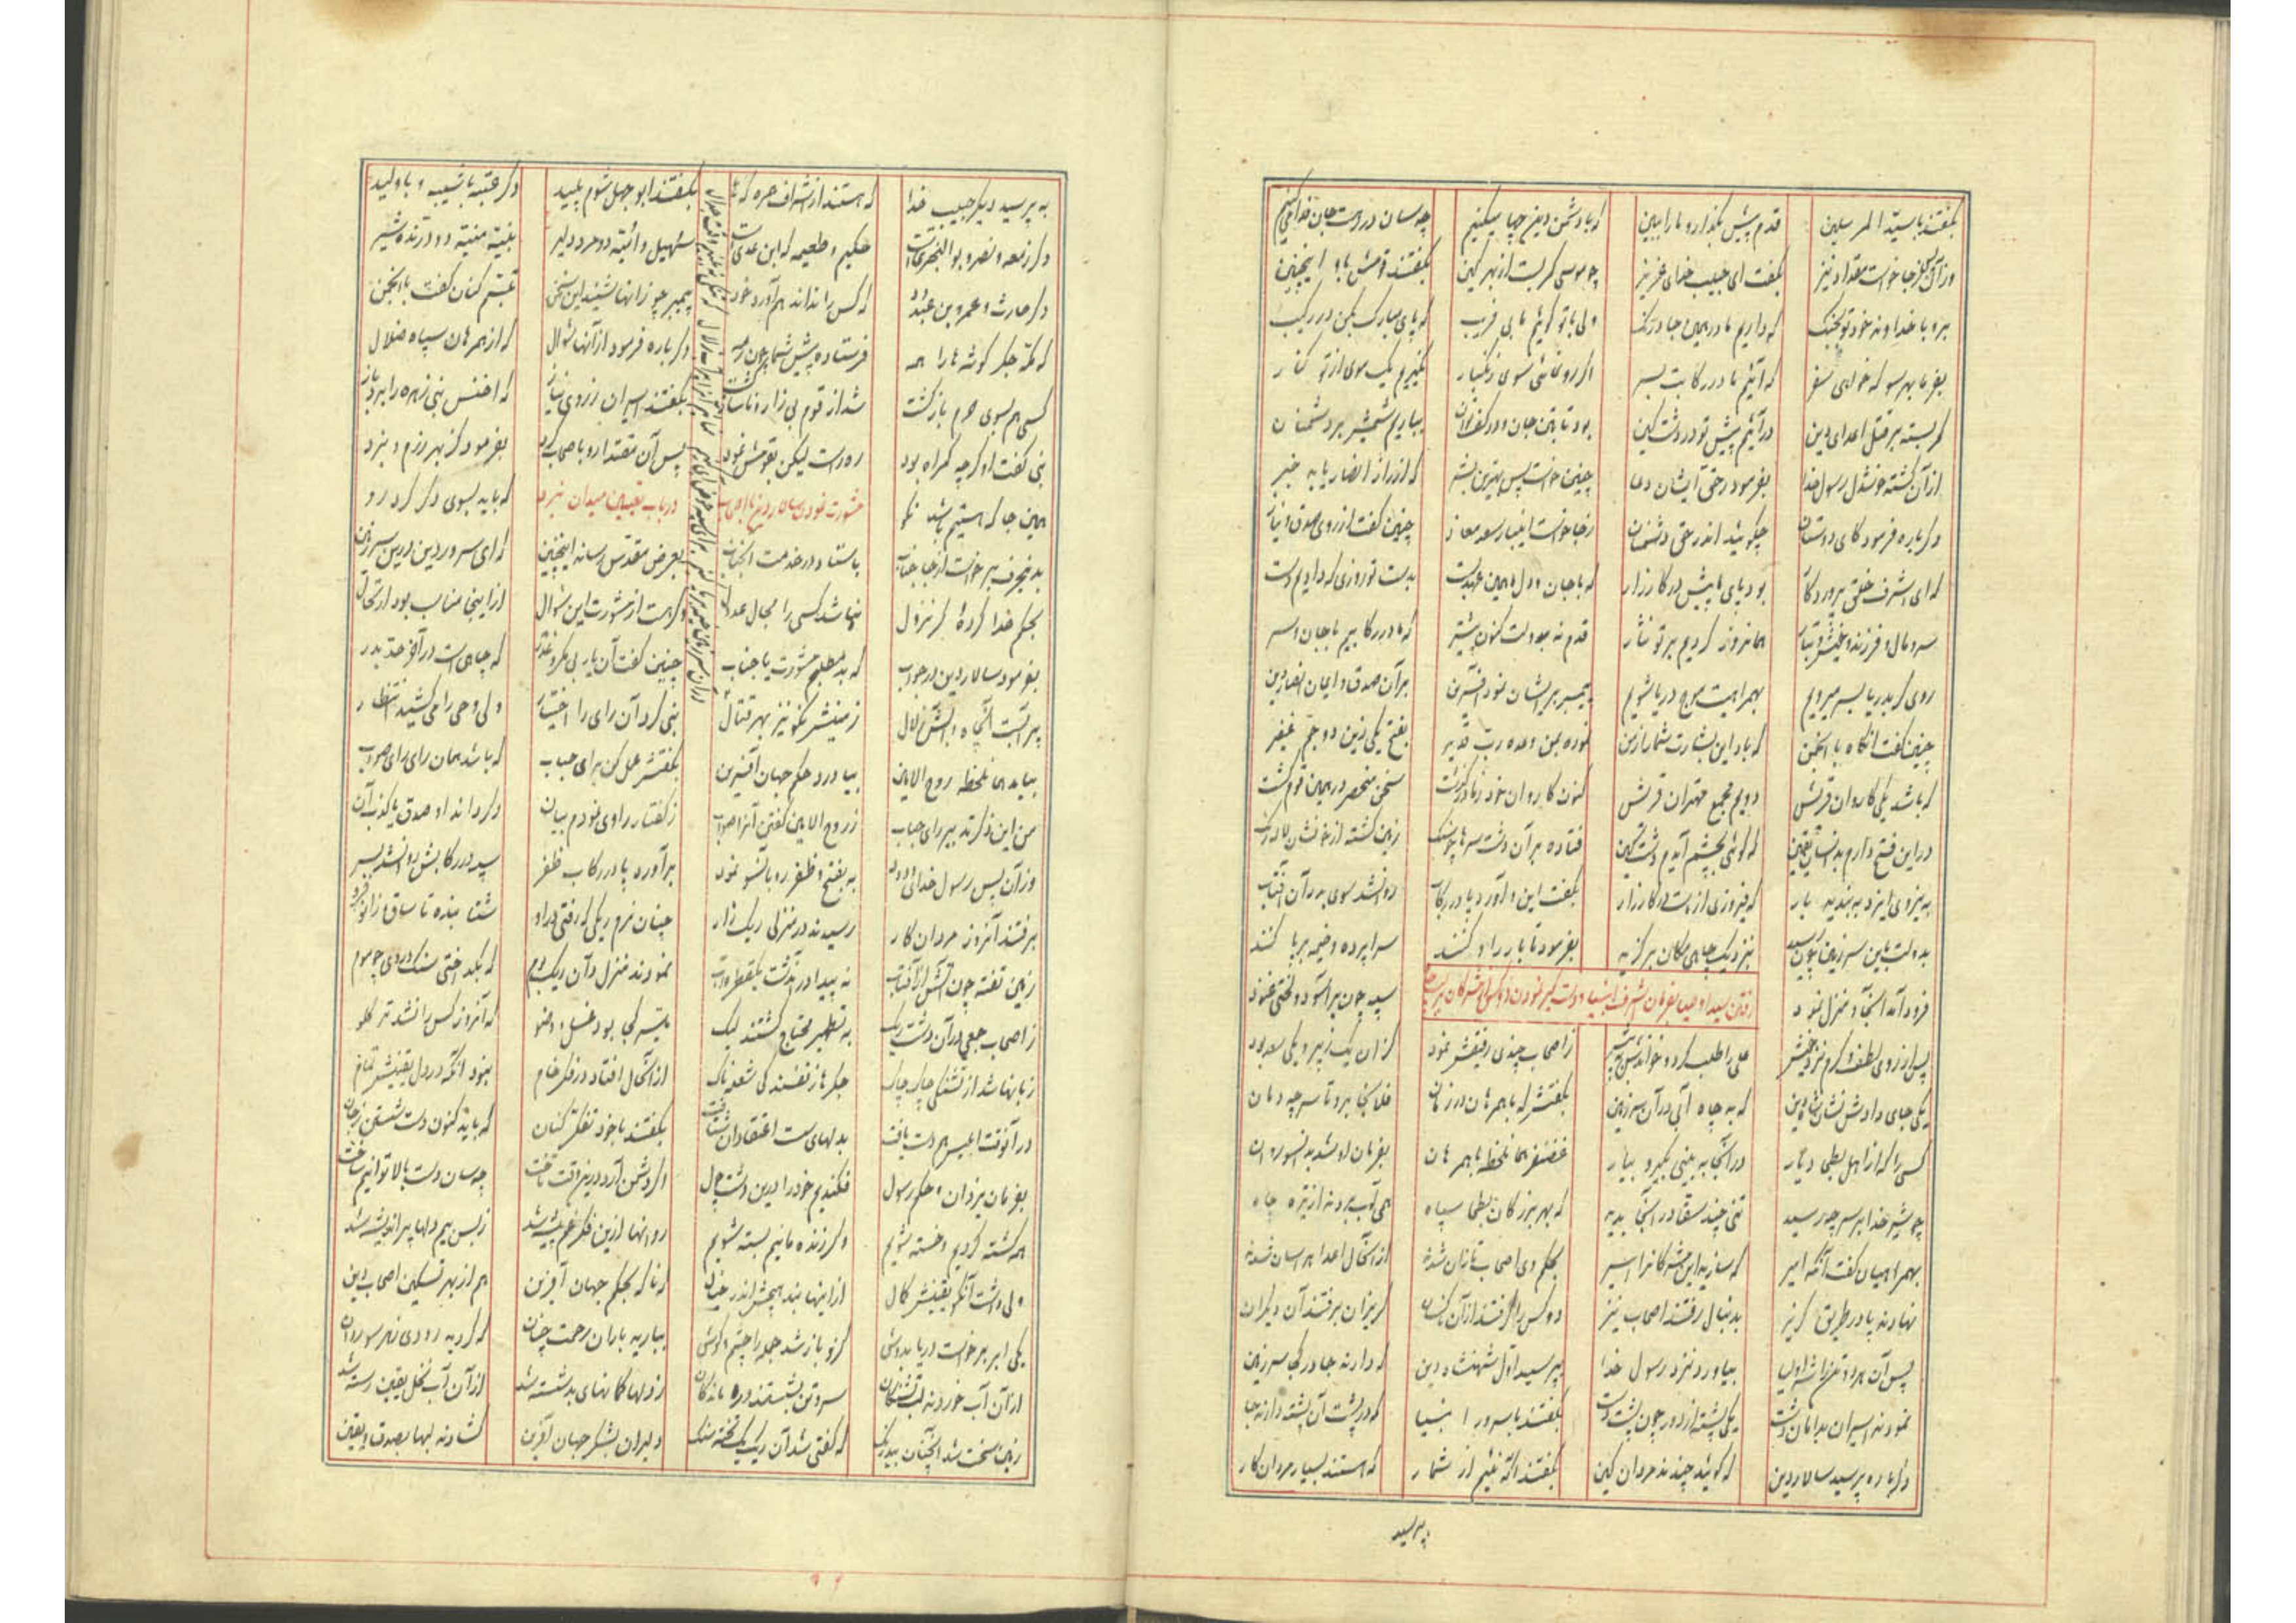 بگفتند با سید المرسلین قدم پیش بگذار و ما را ببین که با دشمن دین چها میکنیم چه سان در رهت جان فدا میکنیم
وز آن پس ز جا خواست مقداد نیز بگفت ای حبیب خدای عزیز چو موسی کمر بست از بهر کین بگفتند قومش باو اینچنین
برو با خداوند خود تو بجنگ که داریم ما در همین جا درنگ ولی با تو گوئیم ما بی فریب که پای مبارک بکن در رکیب
بفرما بهر سو که خواهی سفر که آئیم ما در رکابت بسر اگر رو نمائی سوی زنگبار نگیریم یک موی از تو کنار
کمر بسته بر قتل اعدای دین در آئیم پیش تو در دشت کین بود تا بتن جان و در کف توان بباریم شمشیر بر دشمنان
از آن گشته خوشدل رسول خدا بفرمود در حق ایشان دعا چنین خواست پس بهترین بشر که از راز انصار یابد خبر
دگرباره فرمود کای دوستان چگوئید اندر حق دشمنان ز جا خواست اینبار سعد معاذ چنین گفت از روی صدق و نیاز
که ای اشرف خلق پروردگار بود پای ما پیش در کارزار که با جان و دل ما همین عهد بست بدست تو روزی که دادیم دست
سر و مال و فرزند و خویش و تبار همانروز کردیم بر تو نثار قدم نه بدولت کنون پیشتر که ما در رکابیم با جان و سر
روی گر بدریا بسر میرویم بهمراهیت موج دریا شویم پیمبر بر ایشان نمود آفرین بر آن صدق و ایمان انصار دین
چنین گفت آنگاه با انجمن که باد این بشارت شما را ز من نموده بمن وعده رب قدیر بفتح یکی زین دو جم غفیر
که باشد یکی کاروان قریش دویم مجمع مهتران قریش کنون کاروان خود ز ما در گذشت سخن منحصر در همین قوم گشت
در این فتح دارم بدانسان یقین که گوئی بچشم آیدم دشت کین فتاده بر آن دشت سرها چو سنگ زمین گشته از خونشان لاله رنگ
به نیروی ایزد ببندید بار که فیروزی از ماست در کارزار بگفت این و آورد پا در رکاب روانشد سوی بدر آن آفتاب
بدولت باین سرزمین چون رسید بنزدیک چاهی مکان برگزید بفرمود تا بار را وا کنند سراپرده و خیمه بر پا کنند
فرود آمد آنجا و منزل نمود سپه چون بر آسود و لختی غنود
رفتن سید اوصیا بفرمان اشرف انبیا و دستگیر نمودن دو کس از مشرکان بر سر چاه
پس از روی لطف و کرم نزد خویش علی را طلب کرد و خواندش به پیش ز اصحاب چندی رفیقش نمود کز آن یک زبیر و یکی سعد بود
یکی جای دادش نشان شاه دین که به چاه آبی در آن سرزمین بگفتش که با همرهان در زمان فلان جا برو تا سر چه دمان
کسی را که از اهل بطحی دیار در آنجا به بینی بگیر و بیار غضنفر هما نلحظه با همرهان بفرمان او شد بدانسو روان
چو شیر خدا بر سر چه رسید تنی چند سقا در آنجا بدید که بهر بزرگان بطحا سپاه همی آب بردند از تیره چاه
بهمراهیان گفت آنگه امیر که سازید این مشرکانرا اسیر بحکم وی اصحاب تازان شدند از آنحال اعدا هراسان شدند
نهادند پا در طریق گریز بدنبال رفتند اصحاب نیز دو کس را گرفتند از آن کسان گریزان برفتند آن دیگران
پس آن هر دو تن را شه اولیا بیاورد نزد رسول خدا بپرسید اول شهنشاه دین که دارند جا در کجا سرزمین
نمودند اسیران بدامان دشت یکی پشته از دور چون پشت دست بگفتند با سرور انبیا که در پشت آن پشته دارند جا
دگرباره پرسید سالار دین که گوئید چندند مردان کین بگفتند آگه نئیم از شمار که هستند بسیار مردان کار
بپرسید
به پرسید دیگر حبیب خدا که هستند از اشراف همره کها بگفتند ابوجهل شوم پلید دگر عتبه با شیبه و با ولید
دگر زمعه و نضر و بوالبختری است حکیم و طعیمه که ابن عدی است سهیل و امیّه دو مرد دلیر نبیه منبه دو درنده شیر
دگر حارث و عمرو بن عبدود که کس را نداند هم آورد خود پیمبر چو زانها شنید این سخن تبسم کنان گفت با انجمن
که مکه جگر گوشه ها را همه فرستاده پیش شما چون رمه دگرباره فرمود از آنها سؤال که از همرهان سپاه ضلال
کسی هم بسوی حرم بازگشت شد از قوم بی زار و ناساز گشت بگفتند اسیران ز روی نیاز که اخنس بنی زهره را برد باز
نبی گفت او گرچه گمراه بود ره راست لیکن بقومش نمود پس آن مقتدا رو باصحاب کرد بفرمود کز بهر رزم و نبرد
همین جا که هستیم باشد نکو که باید بسوی دگر کرد رو
مشورت نمودن سالار دین با اصحاب در باب تعیین میدان نبرد
بدنحرف برخواست از جا حباب باستاد در خدمت آنجناب بعرض مقدس رساند اینچنین که ای سرور دین درین سرزمین
بحکم خدا کردهٔ گر نزول نباشد کسی را مجال عدول وگر هست از مشورت این سؤال از اینجا مناسب بود ارتحال
بفرمود سالار دین در جواب که بد مطلبم مشورت یا حباب چنین گفت آن یار بی مکر و غدر که چاهی است در آخر حد بدر
پر آبست آنچاه و آبش زلال زمینش نکو نیز بهر قتال نبی کرد آن رای را اختیار ولی وحی را می کشید انتظار
بیامد هما نلحظه روح الامین بیاورد حکم جهان آفرین بگفتش عمل کن برای حباب که باشد همان رای رای صواب
من این ذکر تدبیر رای حباب ز روح الامین گفتن آنرا صواب ز گفتار راوی نمودم بیان دگر داند او صدق یا کذب آن
وز آن پس رسول خدای ودود به بفتح و ظفر رو بآنسو نمود بر آورد پا در رکاب ظفر سپه در رکابش روانشد بسر
برفتند آنروز مردان کار رسیدند در منزلی ریگ زار چنان نرم ریگی که رفتی در او شتابنده تا ساق و زانو فرو
زمین تفته چون آتش از آفتاب نه پیدا در آندشت یکقطره آب نمودند منزل در آن ریگ بوم که بگداختی سنگ در وی چو موم
ز اصحاب جمعی در آن دشت ریگ به تطهیر محتاج گشتند لیک میسر کجا بود غسل و وضو که آنروز کس را نشد تر گلو
زبانها شد از تشنگی چاک چاک جگرها ز تفسندگی شعله ناک از آنحال افتاد در فکر خام نبود آنکه در دل یقینش تمام
در آنوقت ابلیس هم دست یافت بدلهای سست اعتقادان شتافت بگفتند با خود تفکر کنان که باید کنون دست شستن ز جان
بفرمان یزدان و حکم رسول فکندیم خود را درین دشت هول اگر دشمن آرد درینوقت تاخت چه سان دست بالا توانیم ساخت
همه کشته گردیم و خسته شویم وگر زنده مانیم بسته شویم روانها ازین فکر غم پیشه شد ز بس بیم دلها پر اندیشه شد
ولی داشت آنکو یقینش کمال از اینها نبد هیچش اندر خیال که ناگه بحکم جهان آفرین هم از بهر تسکین اصحاب دین
یکی ابر برخواست دریا بدوش کزو باز شد جمله را چشم و گوش ببارید باران رحمت چنان که گردید رودی ز هر سو روان
از آن آب خوردند لب تشنگان سر و تن بشستند درماندگان ز دلها گمانهای بد شسته شد از آن آب نخل یقین رسته شد
زمین سخت شد آنچنان بیدرنگ که گفتی شد آن ریگ یک تخته سنگ دلیران بشکر جهان آفرین گشادند لبها بصدق و یقین